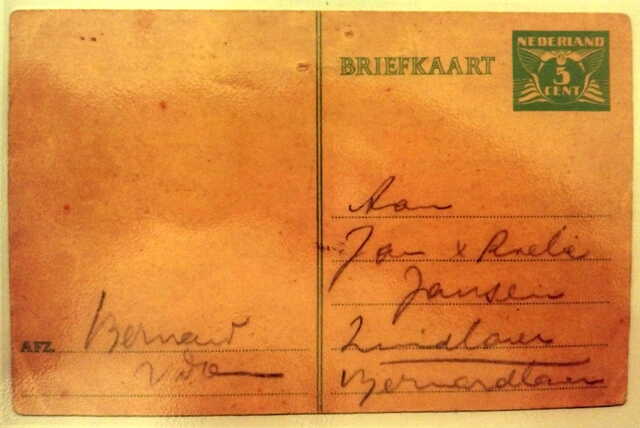 NEDERLAND
5
CENT
BRIEFKAART
Aan
Jan x Roelie
Jansen
Zuidlaren
AFZ. Bernard